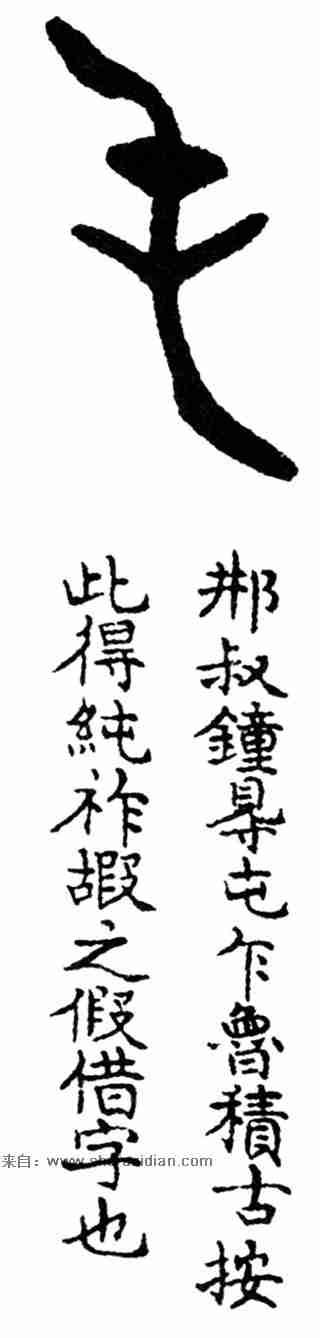 屯
邢叔鐘㝵屯乍魯積古按
此得純祚嘏之假借字也
来自：www.shufazidian.com